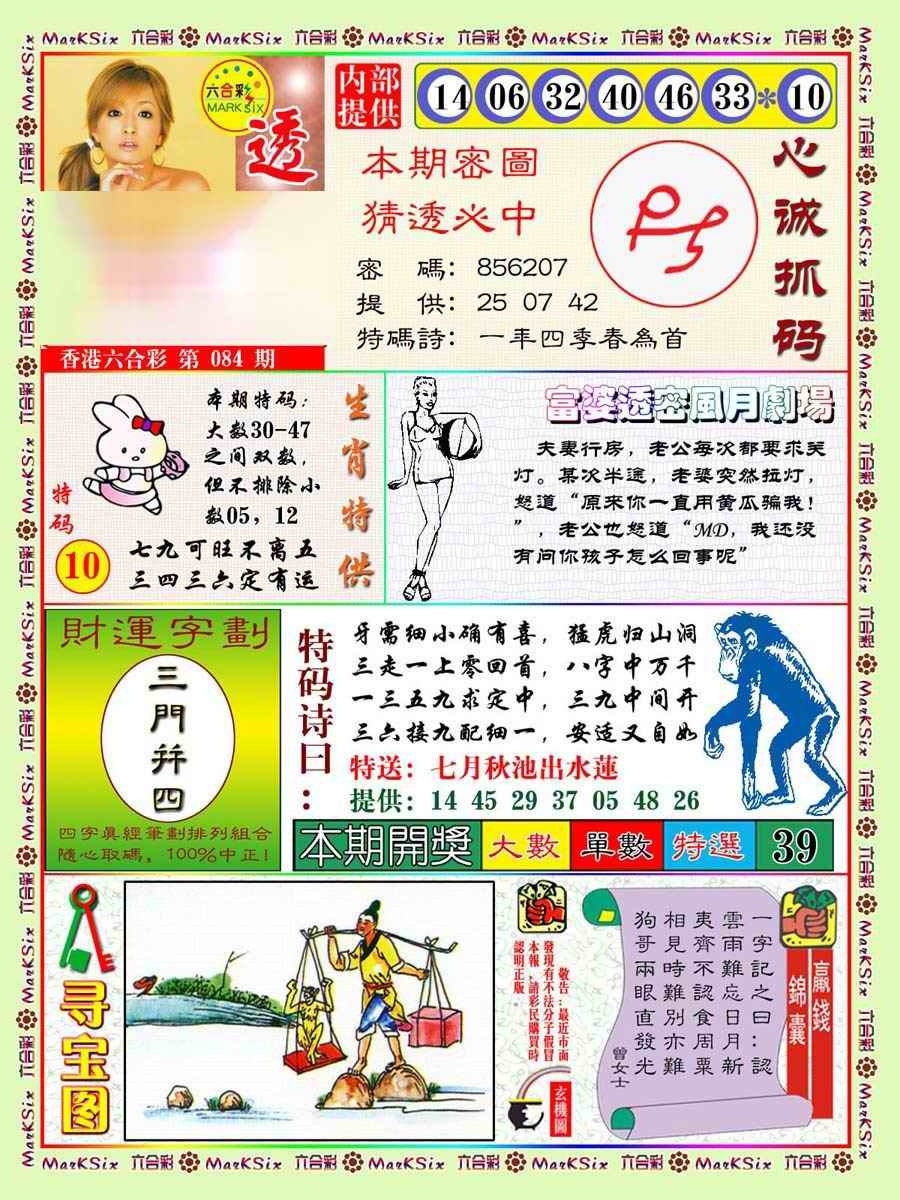 MarKSix 六合彩 MarKSix 六合彩 MarKSix 六合彩 MarKSix 六合彩 MarKSix 六合彩
六合彩
MARK SIX
透
内部
提供
14 06 32 40 46 33 * 10
本期密圖
猜透必中
密 碼: 856207
提 供: 25 07 42
特碼詩: 一年四季春為首
心诚抓码
香港六合彩 第 084 期
本期特码:
大数30-47
之间双数,
但不排除小
数05, 12
生肖特供
特码
10
七九可旺不离五
三四三六定有运
富婆透密風月劇場
夫妻行房，老公每次都要求关
灯。某次半途，老婆突然拉灯，
怒道“原来你一直用黄瓜骗我！
”，老公也怒道“MD，我还没
有问你孩子怎么回事呢”
財運字劃
三門并四
四字眞經筆劃排列組合
隨心取碼，100%中正!
特码诗曰:
牙需细小确有喜，猛虎归山洞
三走一上零回首，八字中万千
一三五九求定中，三九中间开
三六接九配细一，安适又自如
特送：七月秋池出水蓮
提供：14 45 29 37 05 48 26
本期開獎 大數 單數 特選 39
寻宝图
敬告:最近市面
發現有不法分子假冒
本報,請彩民購買時
認明正版。
玄機圖
贏錢
錦囊
一字記之曰：認
雲雨難忘日月新
夷齊不認食周粟
相見時難別亦難
狗哥兩眼直發光
曾女士
MarKSix 六合彩 MarKSix 六合彩 MarKSix 六合彩 MarKSix 六合彩 MarKSix 六合彩